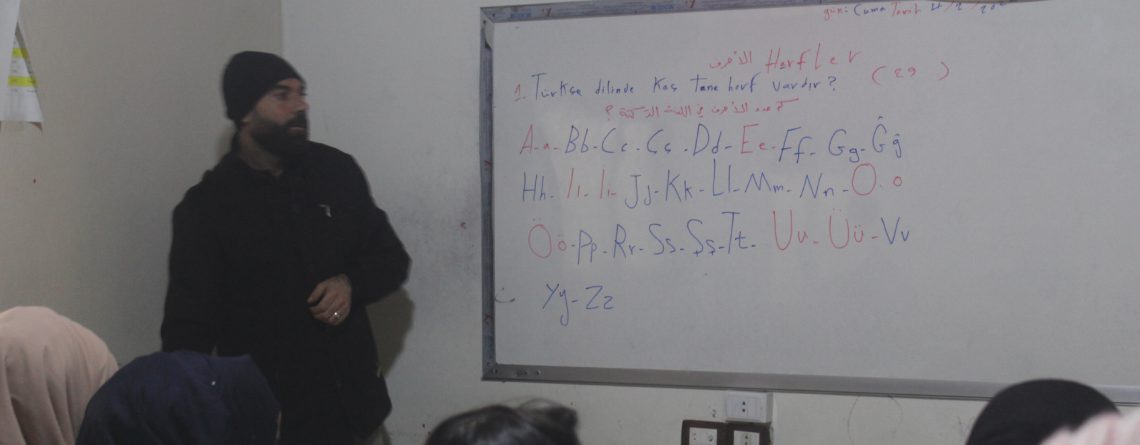 günü Cuma Tarih 4/2/20
الأحرف Harfler
1. Türkçe dilinde Kaç Tane harf vardır? (29)
كم عدد الأحرف في اللغة التركية ؟
A-a-Bb-Cc-Çç-Dd-Ee-Ff-Gg-Ğğ
Hh-Iı-İi-Jj-Kk-Ll-Mm-Nn-O-o
Öö-Pp-Rr-Ss-Şş-Tt-Uu-Üü-Vv
Yy-Zz